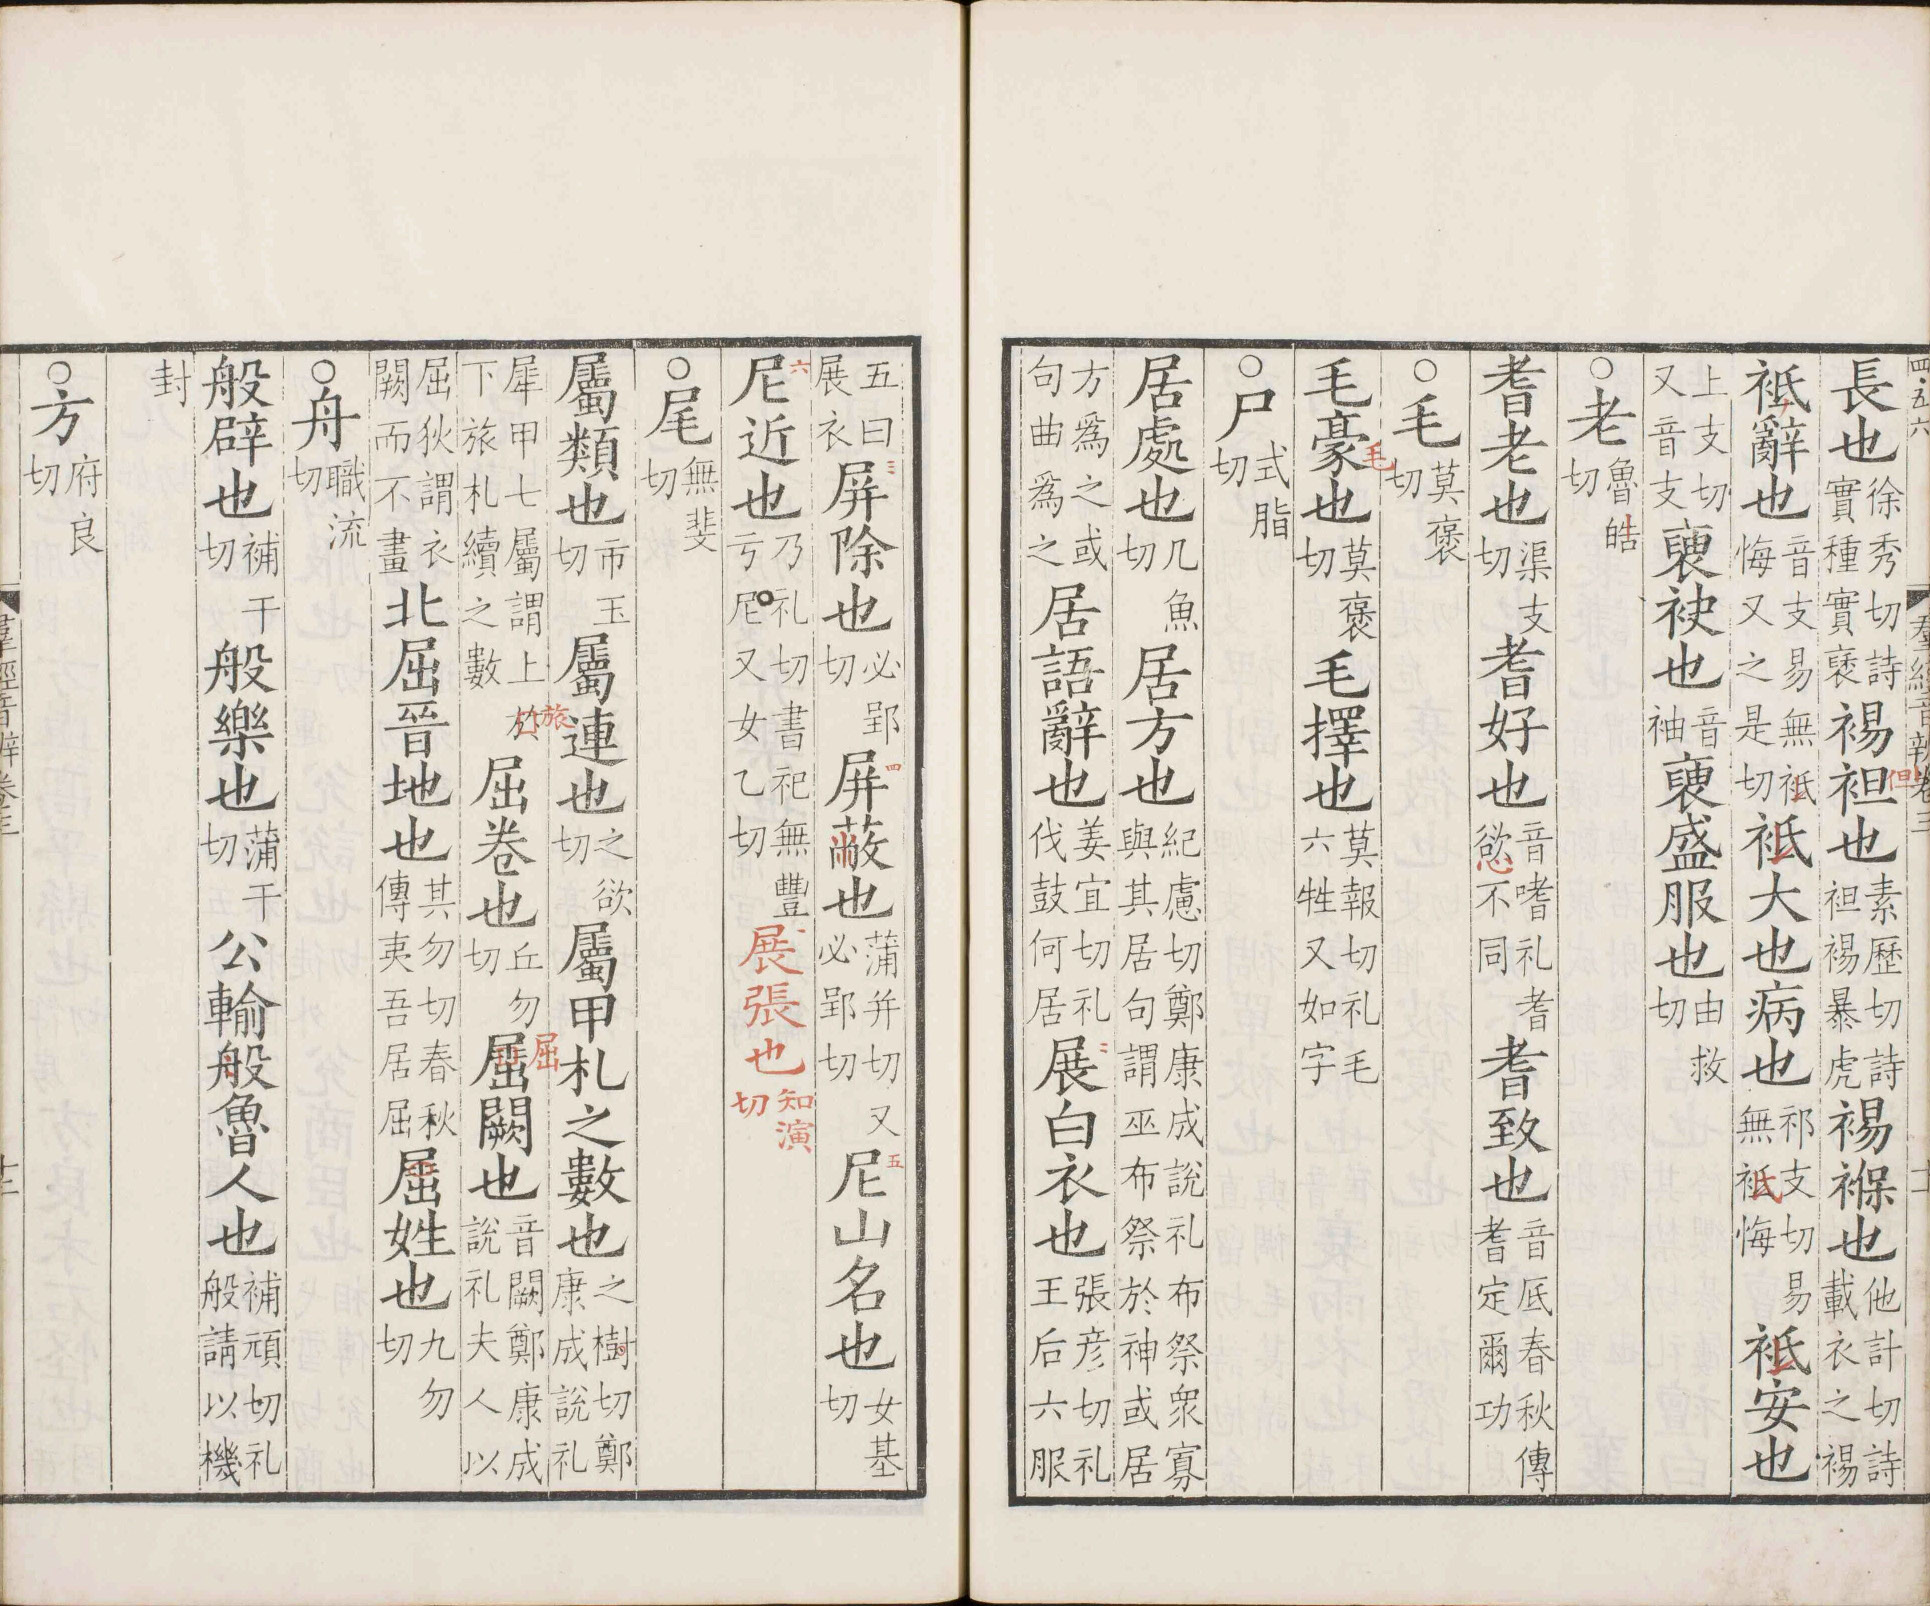 長也徐秀切詩實種實褎裼袒也素歷切詩袒裼暴虎裼褓也他計切詩載衣之裼
袛辭也音支易無袛悔又之是切袛大也病也祁支切易無袛悔袛安也
上支切又音支褏袂也音袖褏盛服也由救切
○老魯皓切
耆老也渠支切耆好也音嗜礼耆慾不同耆致也音厎春秋傳耆定爾功
○毛莫褒切
毛豪也莫褒切毛擇也莫報切礼毛六牲又如字
○尸式脂切
居處也几魚切居方也紀慮切鄭康成說礼布祭衆寡與其居句謂巫布祭於神或居
方爲之或句曲爲之居語辭也姜宜切礼伐鼓何居展白衣也張彦切礼王后六服
五曰展衣屏除也必郢切屏蔽也蒲并切又必郢切尼山名也女基切
尼近也乃礼切書祀無豐亏尼又女乙切展張也知演切
○尾無斐切
屬類也市玉切屬連也之欲切屬甲札之數也之樹切鄭康成說礼
犀甲七屬謂上於下旅札續之數屈卷也丘勿切屈闕也音闕鄭康成說礼夫人以
屈狄謂衣闕而不畫北屈晉地也其勿切春秋傳夷吾居屈屈姓也九勿切
○舟職流切
般辟也補干切般樂也蒲干切公輸般魯人也補頑切礼般請以機
封
○方府良切
四五六
羣經音辨卷三
十一
羣經音辨卷三
十二
三
四
五
六
二
毛
但
氏
旅
屈